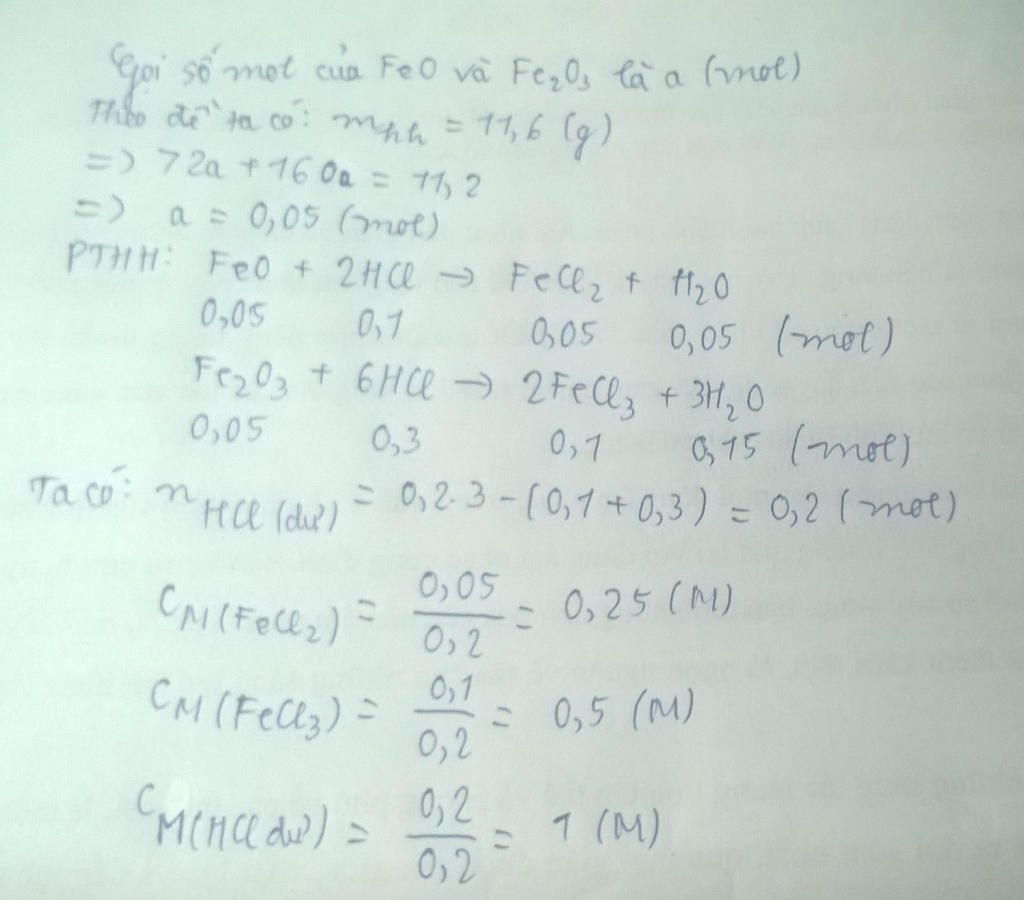 Gọi số mol của FeO và Fe₂O₃ là a (mol)
Theo đề ta có: mhh = 11,6 (g)
=> 72a + 160a = 11,2
=> a = 0,05 (mol)
PTHH: FeO + 2HCl → FeCl₂ + H₂O
0,05 0,1 0,05 0,05 (mol)
Fe₂O₃ + 6HCl → 2FeCl₃ + 3H₂O
0,05 0,3 0,1 0,15 (mol)
Ta có: nHCl (dư) = 0,2.3 - (0,1 + 0,3) = 0,2 (mol)
CM(FeCl₂) = 0,05/0,2 = 0,25 (M)
CM(FeCl₃) = 0,1/0,2 = 0,5 (M)
CM(HCl dư) = 0,2/0,2 = 1 (M)